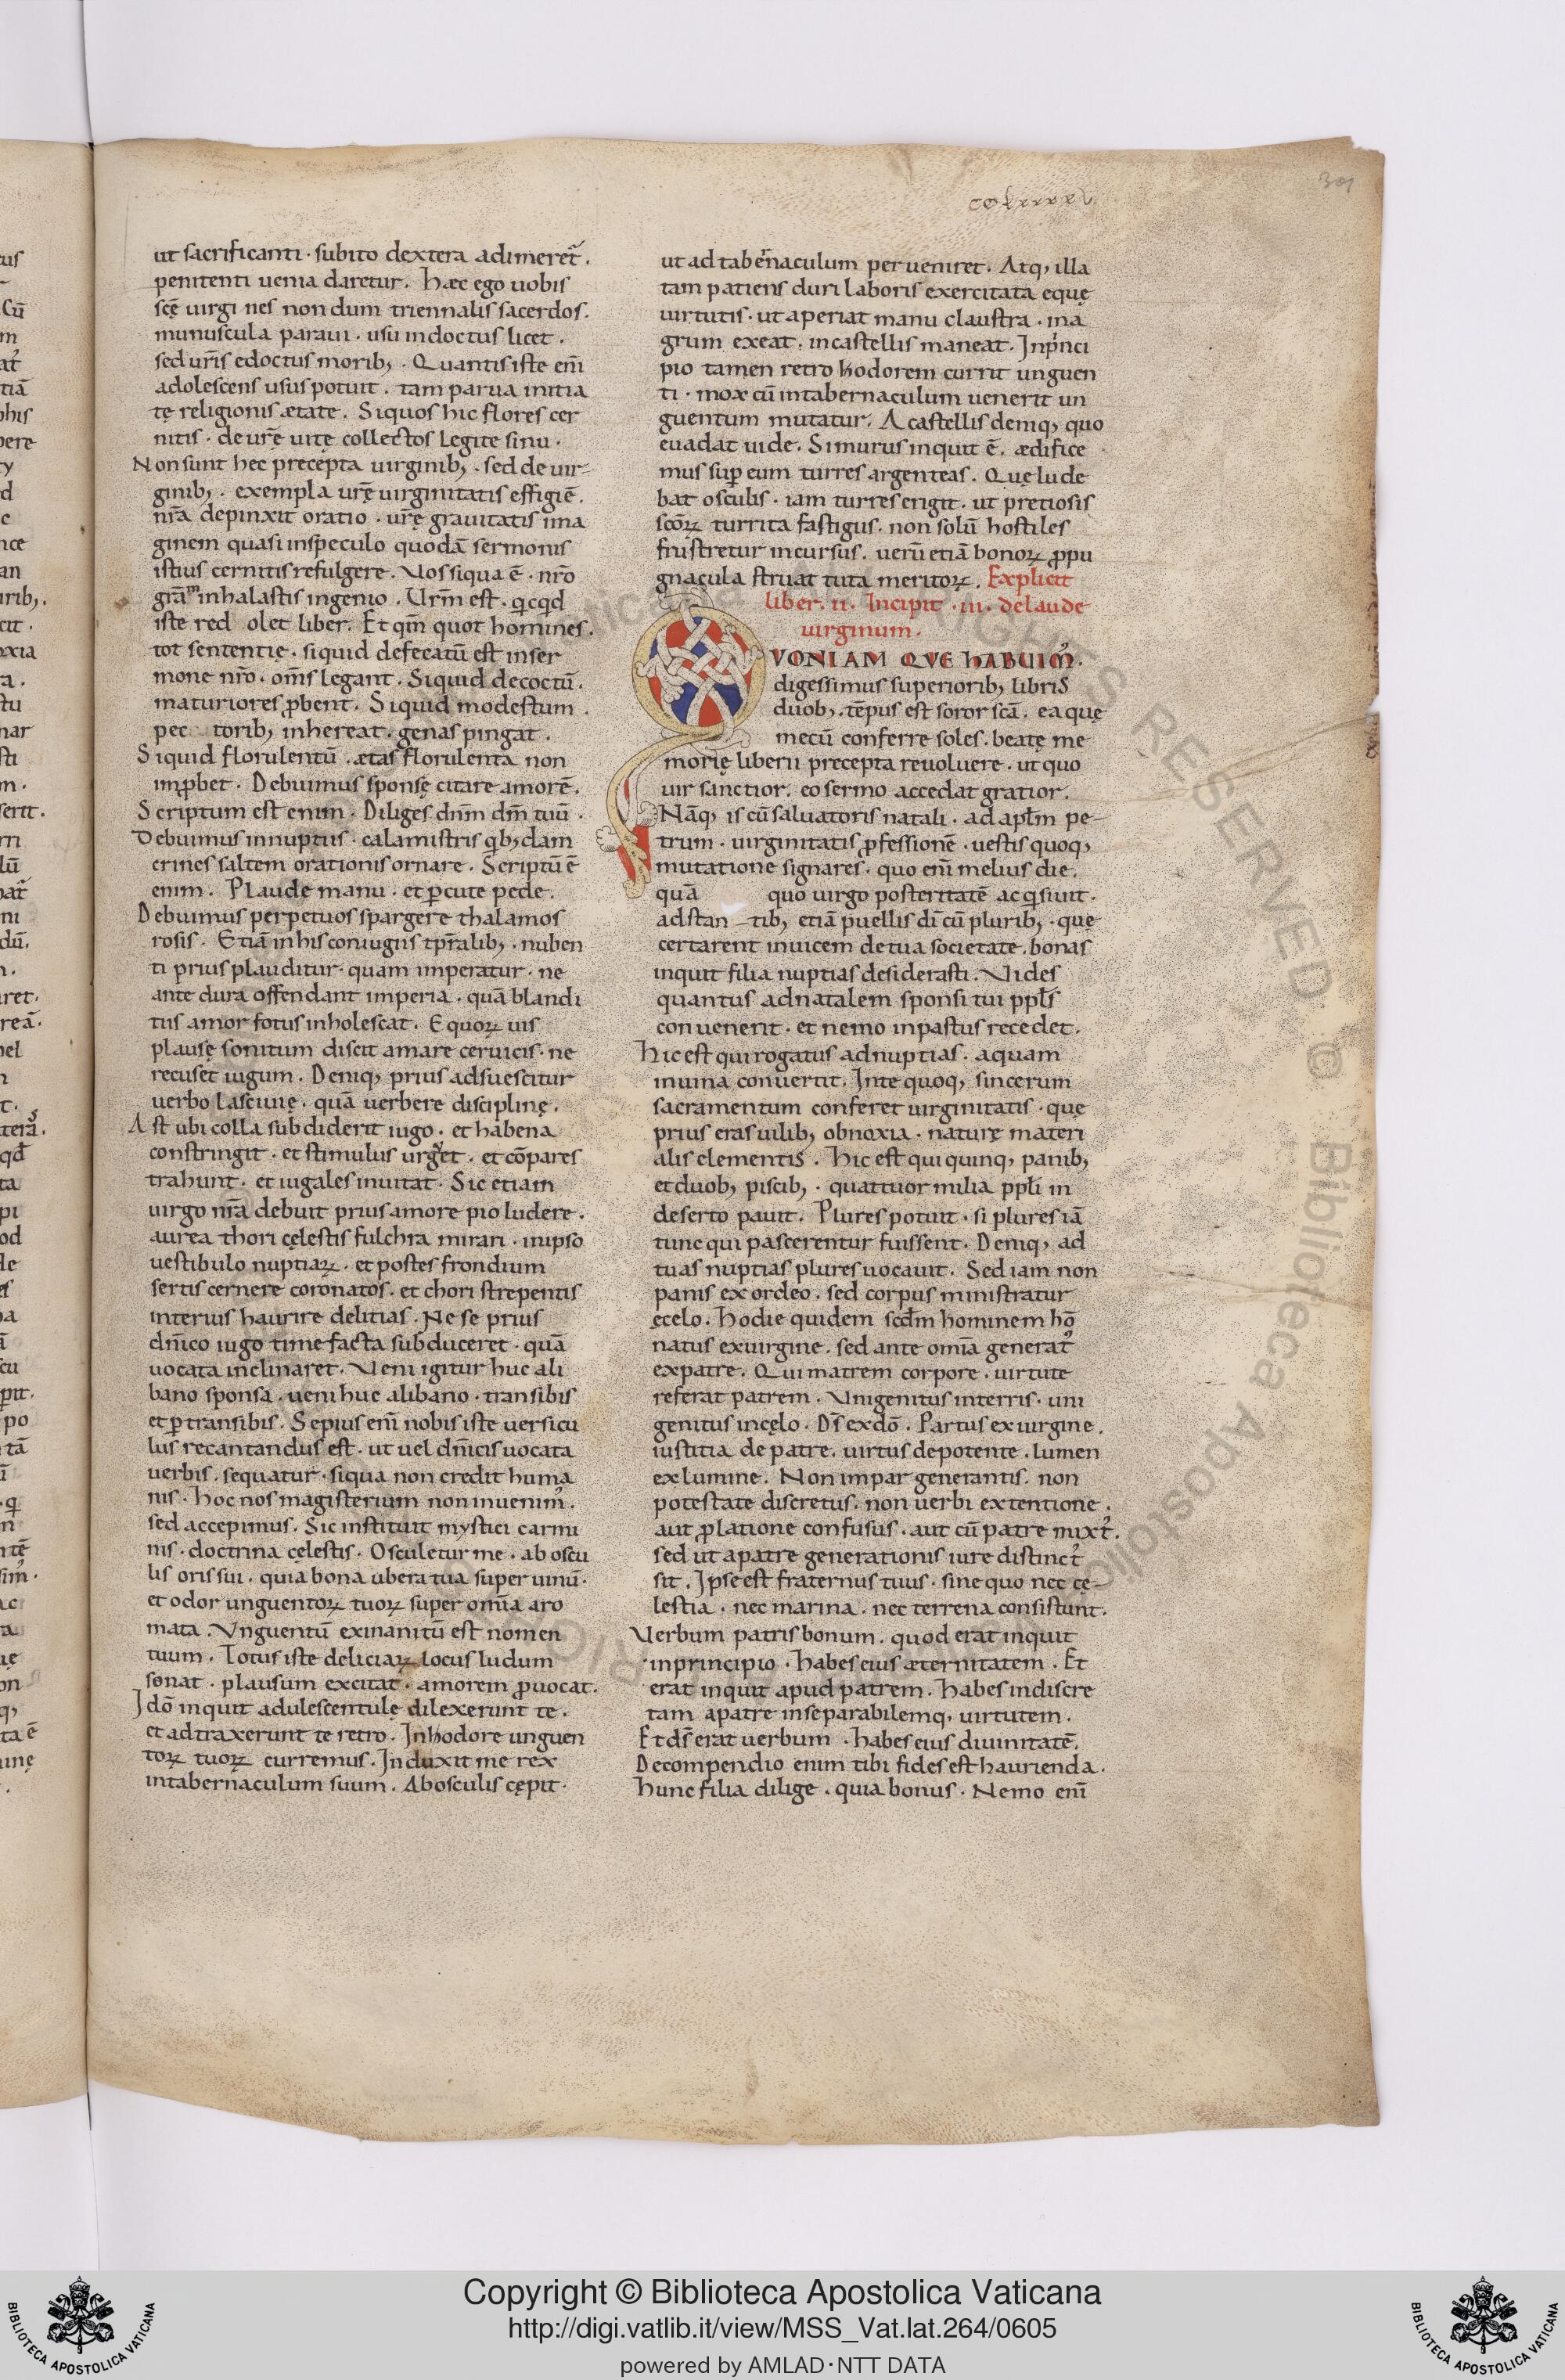 ut sacrificanti · subito dextera adimeret᷑.
penitenti uenia daretur. Haec ego uobis
scę̄ uirgi nes non dum triennalis sacerdos.
munuscula paraui · usu indoctus licet .
sed ur̄is edoctus morib; . Quantis iste eni̅
adolescens usus potuit . tam parua initia
tę religionis ætate. Si quos hic flores cer
nitis · de ur̄ę uitę collectos legite sinu ·
Non sunt hec precepta uirginib; . sed de uir-
ginib; . exempla ur̄ę uirginitatis effigiē.
nr̄a depinxit oratio · ur̄ę grauitatis ima
ginem quasi in speculo quodā sermonis
istius cernitis refulgere . Vos siqua ē · nr̄o
gr̄am inhalastis ingenio . Ur̄m est . qicqid
iste red olet liber. Et qm̄ quot homines.
tot sententię · siquid defecatū est in ser
mone nr̄o · om̄s legant . Siquid decoctū.
maturiores ꝓbent. Siquid modestum .
pec torib; inhereat . genas pingat .
Siquid florulentū . ætas florulenta non
imꝓbet . Debuimus sponsę citare amorē.
Scriptum est enim . Diliges dn̄m dm̄ tuū .
Debuimus in nuptiis · calamistris qib;dam
crines saltem orationis ornare . Scriptū ē
enim . Plaude manu . et ꝑcute pede .
Debuimus perpetuos spargere thalamos
rosis . Etiā in his coniugiis tp̄ralib; . nuben
ti prius plauditur · quam imperatur · ne
ante dura offendant imperia . quā blandi
tiis amor fotus inholescat. Equoꝝ uis
plausę sonitum discit amare ceruicis · ne
recuset iugum . Deniq; prius adsuescitur
uerbo lasciuię . quā uerbere disciplinę.
Ast ubi colla subdiderit iugo . et habena
constringit . et stimulus urget . et cōpares
trahunt . et iugales inuitat . Sic etiam
uirgo nr̄a debuit prius amore pio ludere .
aurea thori cęlestis fulchra mirari . in ipso
uestibulo nuptiaꝝ . et postes frondium
sertis cernere coronatos . et chori strepentis
interius haurire delitias . Ne se prius
dn̄ico iugo timefacta subduceret . quā
uocata inclinaret . Veni igitur huc a li
bano sponsa . ueni huc a libano . transibis
et ꝑtransibis . Sepius eni̅ nobis iste uersicu
lus recantandus est . ut uel dn̄icis uocata
uerbis . sequatur . siqua non credit huma
nis . Hoc nos magisterium non inuenimꝰ.
sed accepimus . Sic instituit mystici carmi
nis . doctrina cęlestis . Osculetur me . ab oscu
lis oris sui . quia bona ubera tua super uinū .
et odor unguentoꝝ tuoꝝ super om̄ia aro
mata . Vnguentū exinanitū est nomen
tuum . Totus iste deliciaꝝ locus ludum
sonat . plausum excitat . amorem ꝓuocat.
Idō inquit adulescentulę dilexerunt te .
et adtraxerunt te retro . In hodore unguen
toꝝ tuoꝝ curremus . Induxit me rex
in tabernaculum suum . Ab osculis cępit .
colxxxxv
301
ut ad taber̄naculum perueniret . Atq; illa
tam patiens duri laboris exercitata equę
uirtutis . ut aperiat manu claustra . in a
grum exeat . in castellis maneat . In pi̓nci
pio tamen retro hodorem currit unguen
ti . mox cū in tabernaculum uenerit un
guentum mutatur . A castellis deniq; quo
euadat uide . Si murus inquit ē . ædifice
mus suꝑ eum turres argenteas . Quę lude
bat osculis . iam turres erigit . ut pretiosis
sc̄oꝝ turrita fastigiis . non solū hostiles
frustretur incursus . uerū etiā bonoꝝ ꝓpu
gnacula struat tuta meritoꝝ . Explicit
liber . ii . Incipit . iii . de laude
uirginum .
QVONIAM QVE HABUIMꝰ.
digessimus superiorib; libris
duob; . tēpus est soror scā . ea quę
mecū conferre soles . beatę me
morię liberii precepta reuoluere . ut quo
uir sanctior . eo sermo accedat gratior .
Nāq; is cū saluatoris natali . ad apl̄m pe-
trum . uirginitatis ꝓfessionē . uestis quoq;
mutatione signares . quo eni̅ melius die .
quā quo uirgo posteritatē acqisiuit .
adstan tib; etiā puellis di̅ cū plurib; . quę
certarent inuicem de tua societate . bonas
inquit filia nuptias desiderasti . Vides
quantus ad natalem sponsi tui ppl̄s
conuenerit . et nemo inpastus recedet .
Hic est qui rogatus ad nuptias . aquam
in uina conuertit . In te quoq; sincerum
sacramentum conferet uirginitatis . quę
prius eras uilib; obnoxia . naturę materi
alis elementis . Hic est qui quinq; panib;
et duob; piscib; . quattuor milia ppl̄i in
deserto pauit . Plures potuit . si plures iā
tunc qui pascerentur fuissent . Deniq; ad
tuas nuptias plures uocauit . Sed iam non
panis ex ordeo . sed corpus ministratur
ęcelo . Hodie quidem scd̄m hominem hō
natus ex uirgine . sed ante om̄ia generatꝰ
ex patre . Qui matrem corpore . uirtute
referat patrem . Vnigenitus in terris . uni
genitus in cęlo . Ds̄ ex dō . Partus ex uirgine .
iustitia de patre . uirtus de potente . lumen
ex lumine . Non impar generantis . non
potestate discretus . non uerbi extentione .
aut ꝓlatione confusus . aut cū patre mixtꝰ.
sed ut a patre generationis iure distinctꝰ
sit . Ipse est fraternus tuus . sine quo nec cę-
lestia . nec marina . nec terrena consistunt .
Verbum patris bonum . quod erat inquit
in principio . Habes eius æternitatem . Et
erat inquit apud patrem . Habes indiscre
tam a patre inseparabilemq; uirtutem .
Et ds̄ erat uerbum . Habes eius diuinitatē.
De compendio enim tibi fides est haurienda .
Hunc filia dilige . quia bonus . Nemo eni̅
Copyright © Biblioteca Apostolica Vaticana
http://digi.vatlib.it/view/MSS_Vat.lat.264/0605
powered by AMLAD·NTT DATA
BIBLIOTECA APOSTOLICA VATICANA
BIBLIOTECA APOSTOLICA VATICANA